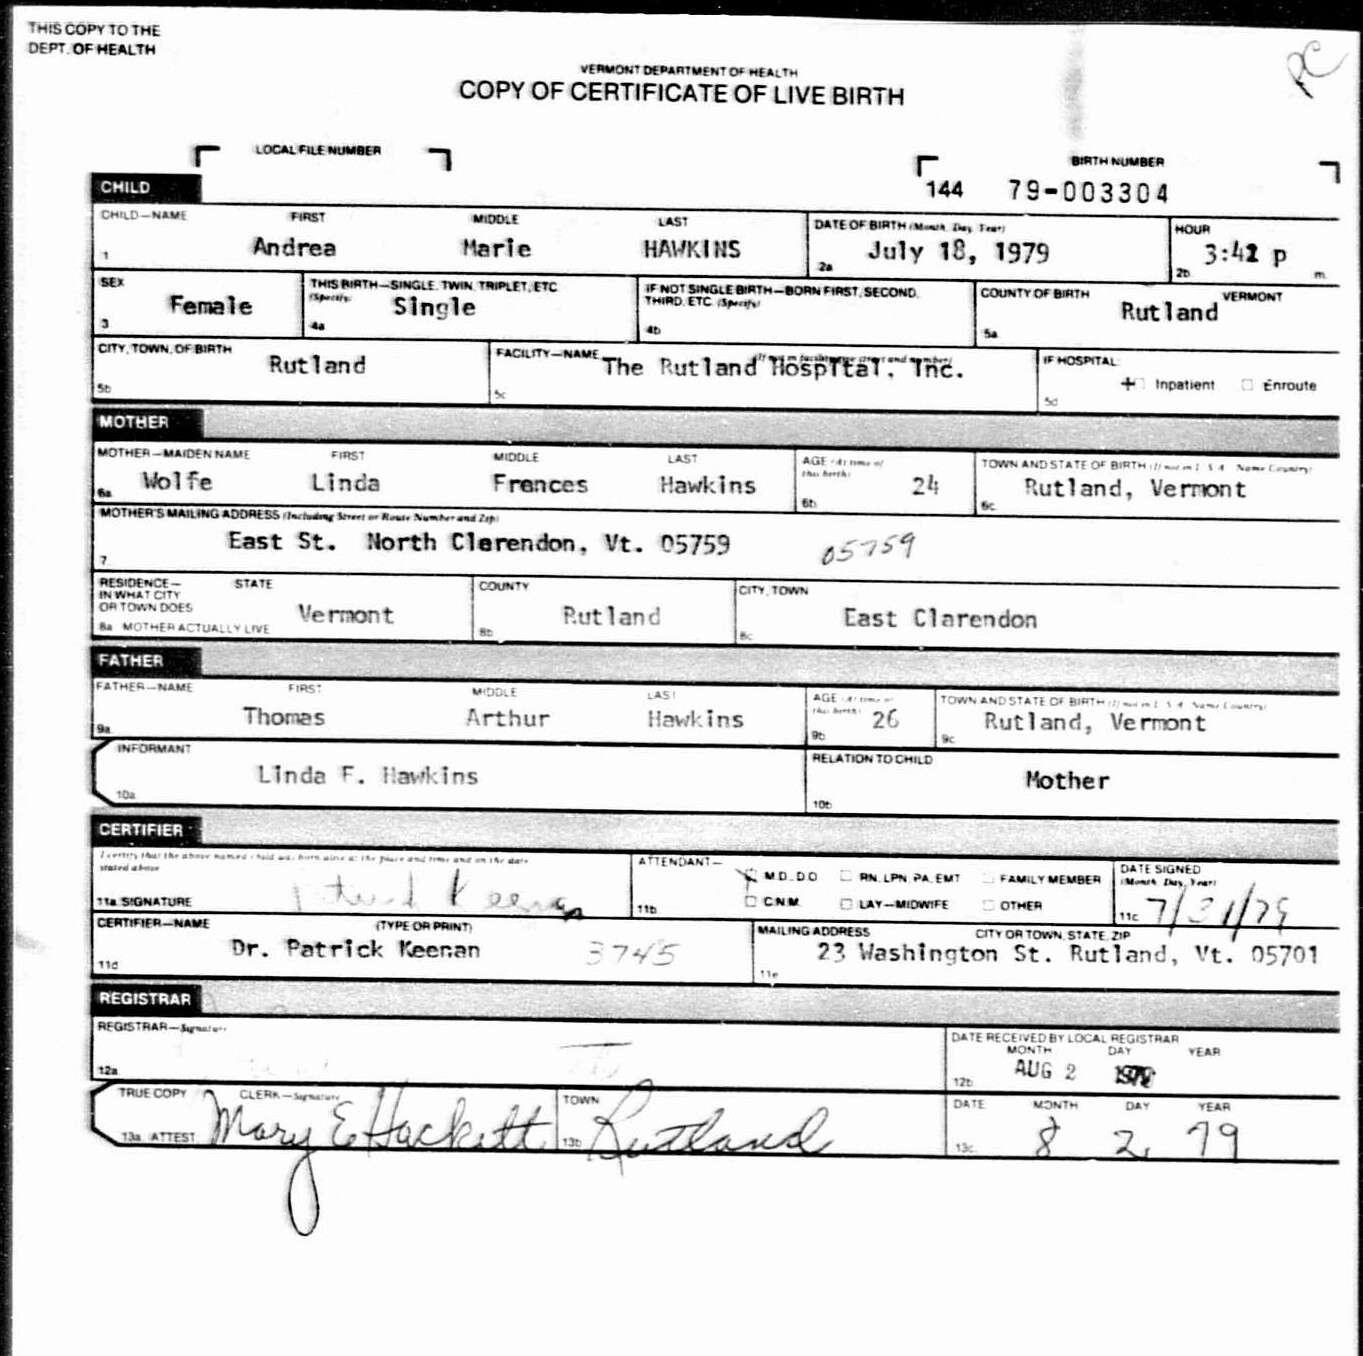 THIS COPY TO THE
DEPT. OF HEALTH
PC
VERMONT DEPARTMENT OF HEALTH
COPY OF CERTIFICATE OF LIVE BIRTH
LOCAL FILE NUMBER
BIRTH NUMBER
CHILD
144 79-003304
CHILD—NAME FIRST MIDDLE LAST DATE OF BIRTH (Month, Day, Year) HOUR
1 Andrea Marie HAWKINS 2a July 18, 1979 2b 3:42 p m.
SEX THIS BIRTH—SINGLE, TWIN, TRIPLET, ETC. (Specify) IF NOT SINGLE BIRTH—BORN FIRST, SECOND, THIRD, ETC. (Specify) COUNTY OF BIRTH VERMONT
3 Female 4a Single 4b 5a Rutland
CITY, TOWN, OF BIRTH FACILITY—NAME (If not in facility, give street and number) IF HOSPITAL
5b Rutland 5c The Rutland Hospital, Inc. 5d + Inpatient Enroute
MOTHER
MOTHER—MAIDEN NAME FIRST MIDDLE LAST AGE (At time of this birth) TOWN AND STATE OF BIRTH (If not in U.S.A. Name Country)
6a Wolfe Linda Frances Hawkins 6b 24 6c Rutland, Vermont
MOTHER'S MAILING ADDRESS (Including Street or Route Number and Zip)
7. East St. North Clarendon, Vt. 05759 05759
RESIDENCE— STATE COUNTY CITY, TOWN
IN WHAT CITY
OR TOWN DOES
8a MOTHER ACTUALLY LIVE Vermont 8b Rutland 8c East Clarendon
FATHER
FATHER—NAME FIRST MIDDLE LAST AGE (At time of this birth) TOWN AND STATE OF BIRTH (If not in U.S.A. Name Country)
9a Thomas Arthur Hawkins 9b 26 9c Rutland, Vermont
INFORMANT RELATION TO CHILD
10a Linda F. Hawkins 10b Mother
CERTIFIER
I certify that the above named child was born alive at the place and time and on the date
stated above
ATTENDANT— M.D., D.O RN, LPN, PA, EMT FAMILY MEMBER DATE SIGNED (Month, Day, Year)
11a SIGNATURE Patrick Keenan 11b C.N.M. LAY—MIDWIFE OTHER 11c 7/31/79
CERTIFIER—NAME (TYPE OR PRINT) MAILING ADDRESS CITY OR TOWN, STATE, ZIP
11d Dr. Patrick Keenan 3745 11e 23 Washington St. Rutland, Vt. 05701
REGISTRAR
REGISTRAR—Signature DATE RECEIVED BY LOCAL REGISTRAR
MONTH DAY YEAR
12a 12b AUG 2 1979
TRUE COPY CLERK—Signature TOWN DATE MONTH DAY YEAR
13a ATTEST. Mary E Hackett 13b Rutland 13c 8 2, 79